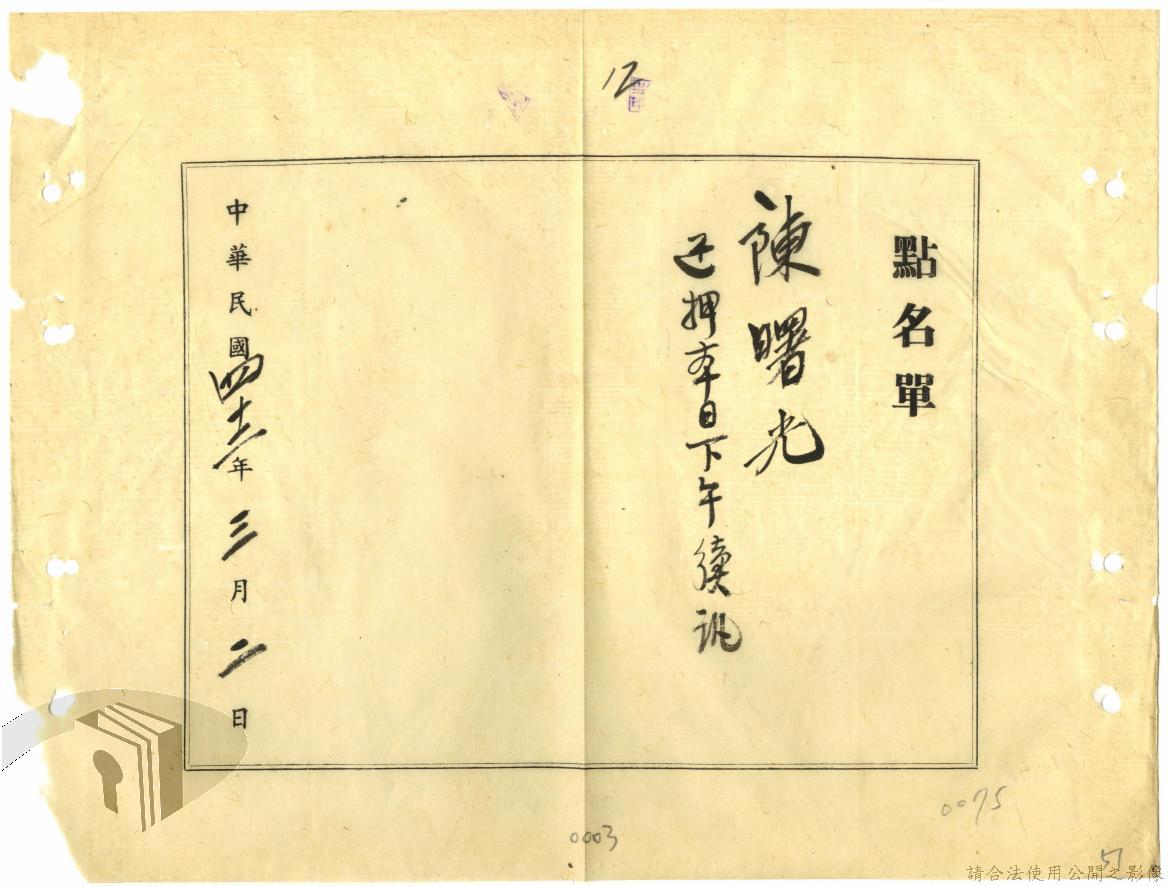 12
點名單
陳曙光
还押本日下午續訊
中華民國四十三年三月二日
0003
0075
51
請合法使用公開之影像